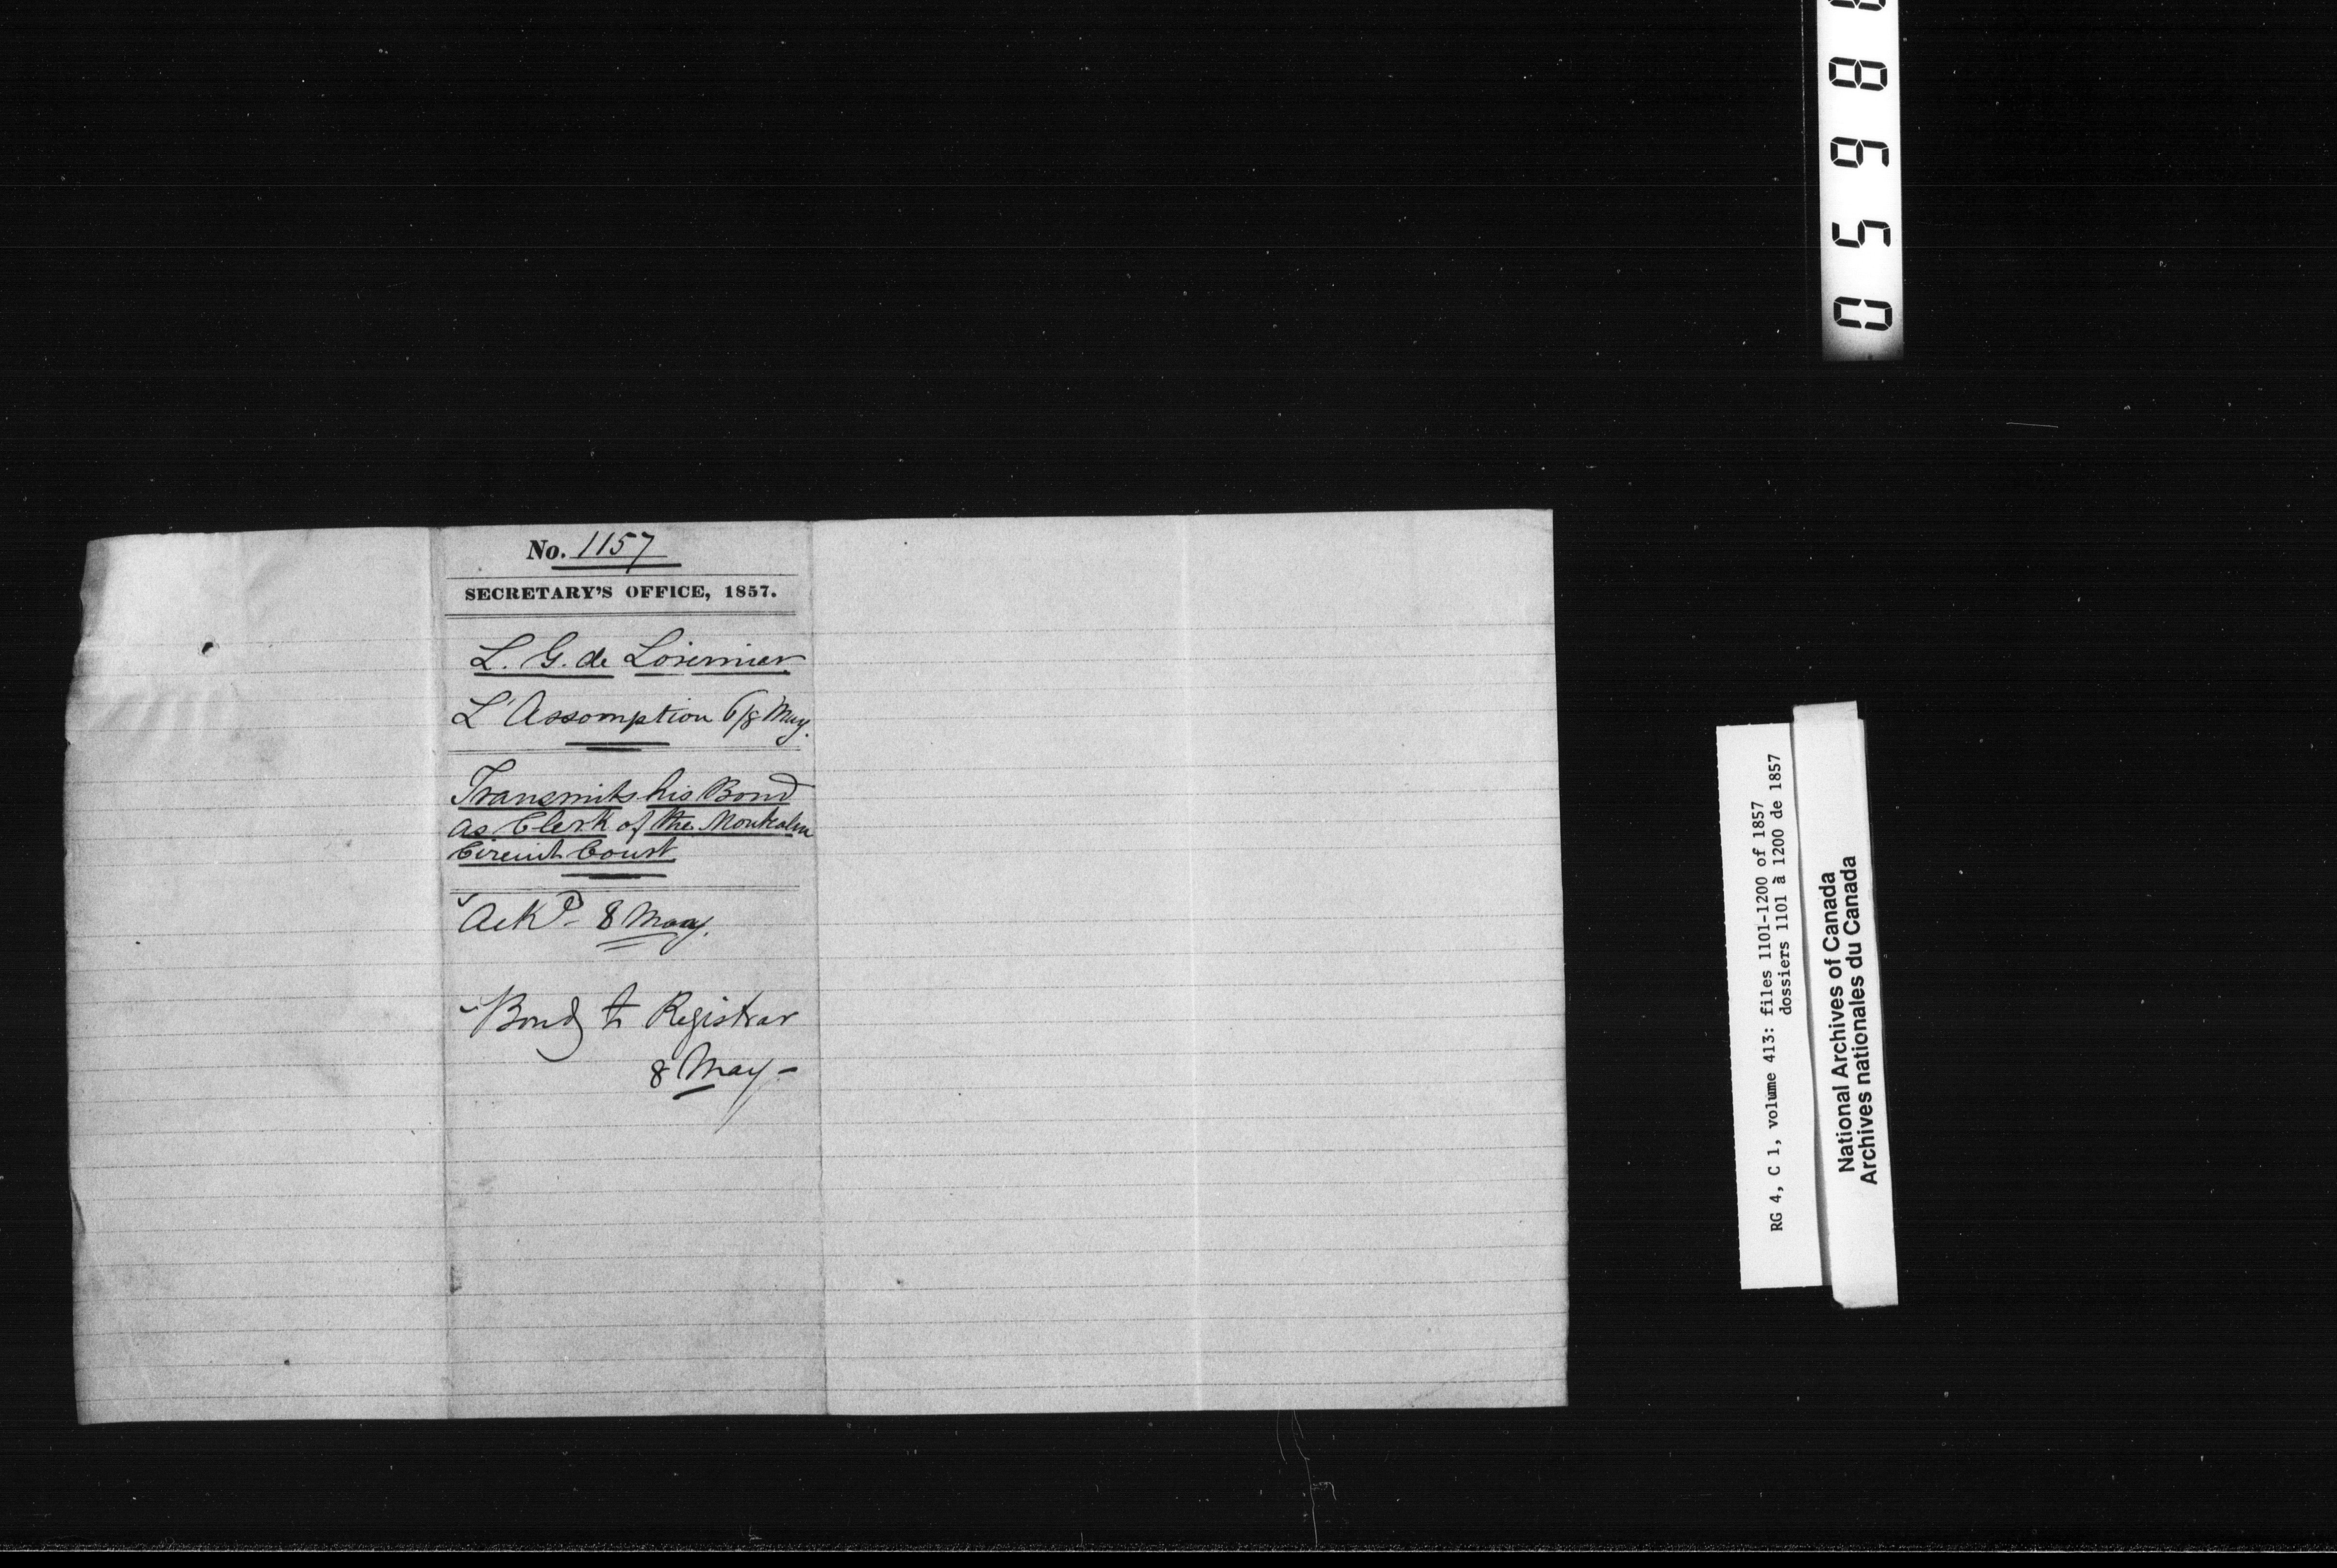 No. 1157
SECRETARY'S OFFICE, 1857.
L. G. de Lorimier
L'Assomption 6/8 May.
Transmits his Bond
as Clerk of the Montcalm
Circuit Court
Ackd. 8 May.
Bond to Registrar
8 May -
RG 4, C 1, volume 413: files 1101-1200 of 1857
dossiers 1101 à 1200 de 1857
National Archives of Canada
Archives nationales du Canada
0 5 9 8